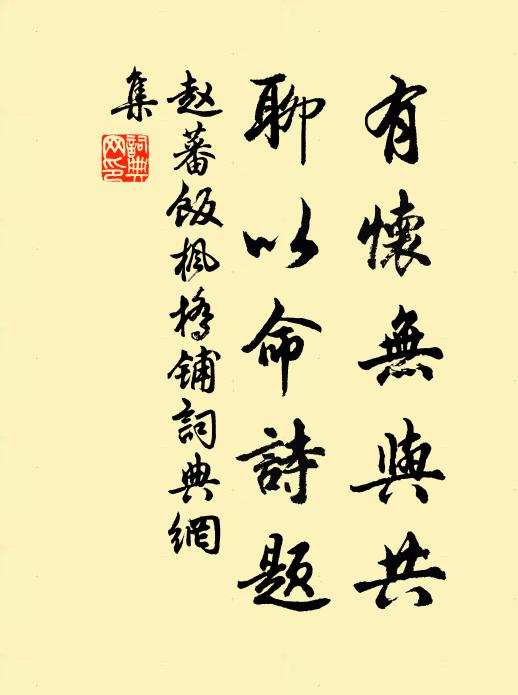 有懷無與共
聊以命詩題
赵蕃飯楓橋鋪詞典網
集
詞典
网